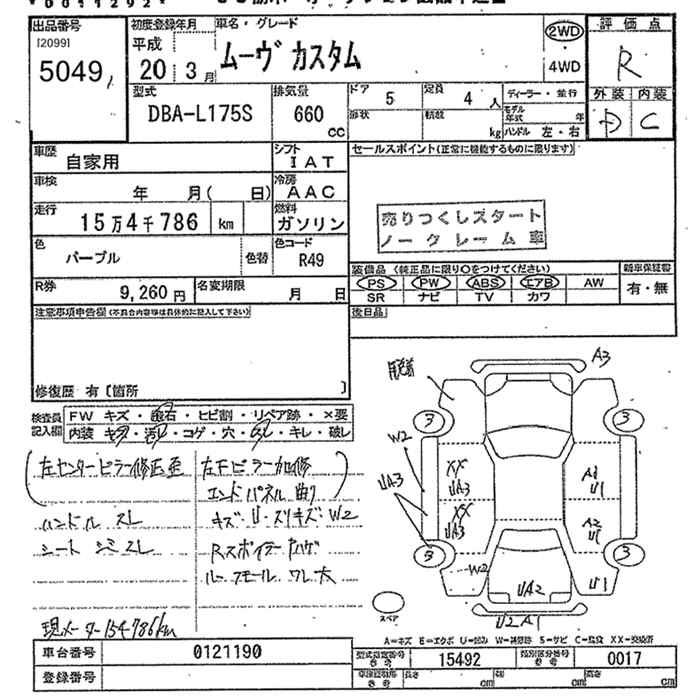 出品番号
[2099]
5049
初度登録年月
平成
20年3月
車名・グレード
ムーヴ カスタム
2WD
4WD
評価点
R
外装 内装
D C
型式
DBA-L175S
排気量
660
cc
ドア
5
定員
4 人
形状
積載
kg
ディーラー・並行
モデル年式 年
ハンドル 左・右
車歴
自家用
シフト
IAT
車検
年 月( 日)
冷房
AAC
走行
15万4千786 km
燃料
ガソリン
色
パープル
色替
色コード
R49
R券
9,260円
名変期限
月 日
セールスポイント(正常に機能するものに限ります)
売りつくしスタート
ノークレーム車
装備品(純正品に限り○をつけてください)
PS PW ABS エアB AW
SR ナビ TV カワ
新車保証書
有・無
注意事項申告欄(不具合内容等は具体的に記入して下さい)
後日品
修復歴 有〔箇所 〕
検査員記入欄
FW キズ・飛石・ヒビ割・リペア跡・×要
内装 キズ・汚れ・コゲ・穴・スレ・キレ・破レ
左センターピラー修正歪
左下ピラー加修
エンドパネル曲り
ハンドル スレ
キズ・U・スリキズ W2
シート シミスレ
Rスポイラー
ルーフモール ワレ大
現メーター154.786km
A3
3
3
W2
XX
UA3
UA3
XX
UA3
A3
U1
A2
U1
3
3
W2
UA2
U1
U2 A1
スペア
A=キズ E=エクボ U=凹み W=補修跡 S=サビ C=腐食 XX=交換済
車台番号
0121190
登録番号
型式指定番号
参考
15492
類別区分番号
参考
0017
車体寸法
参考
長さ cm
幅 cm
高さ cm